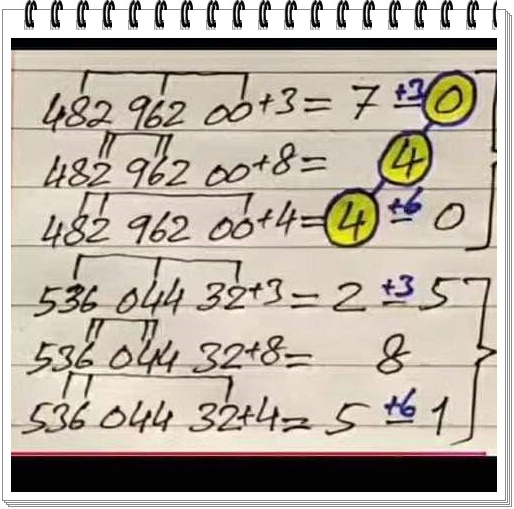 482 962 00+3= 7 +3 0
482 962 00+8= 4
482 962 00+4= 4 +6 0
536 044 32+3= 2 +3 5
536 044 32+8= 8
536 044 32+4= 5 +6 1